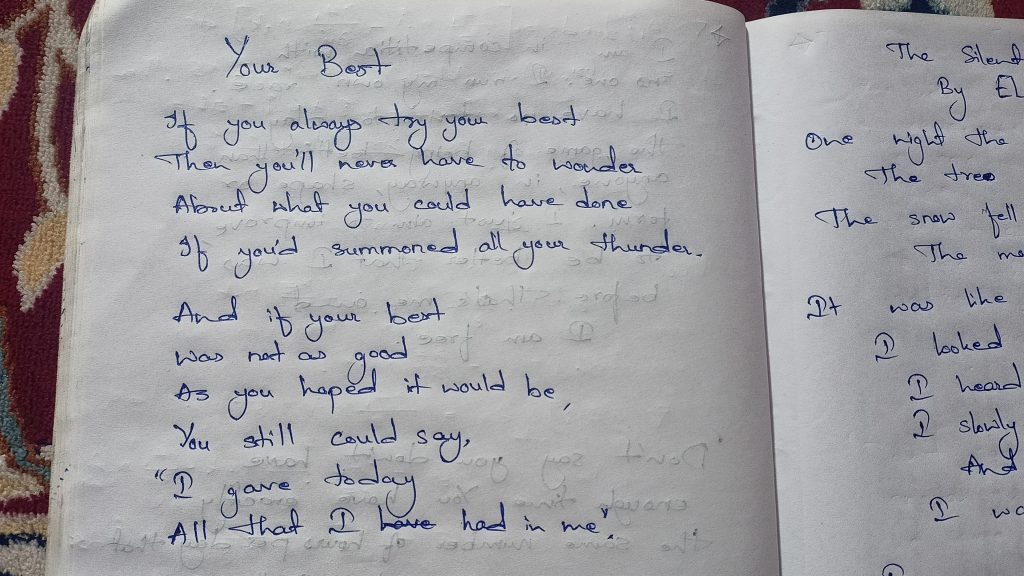 Your Best
If you always try your best
Then you'll never have to wonder
About what you could have done
If you'd summoned all your thunder.
And if your best
was not as good
As you hoped it would be,
You still could say,
"I gave today
All that I have had in me".
The Silent
By EL
One night the
The tree
The snow fell
The
It was like
I looked
I heard
I slowly
And
I